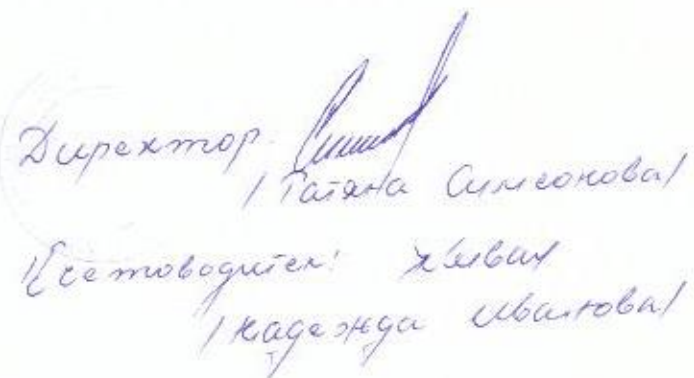 Директор:
/Татяна Симеонова/
Счетоводител:
/Надежда Иванова/